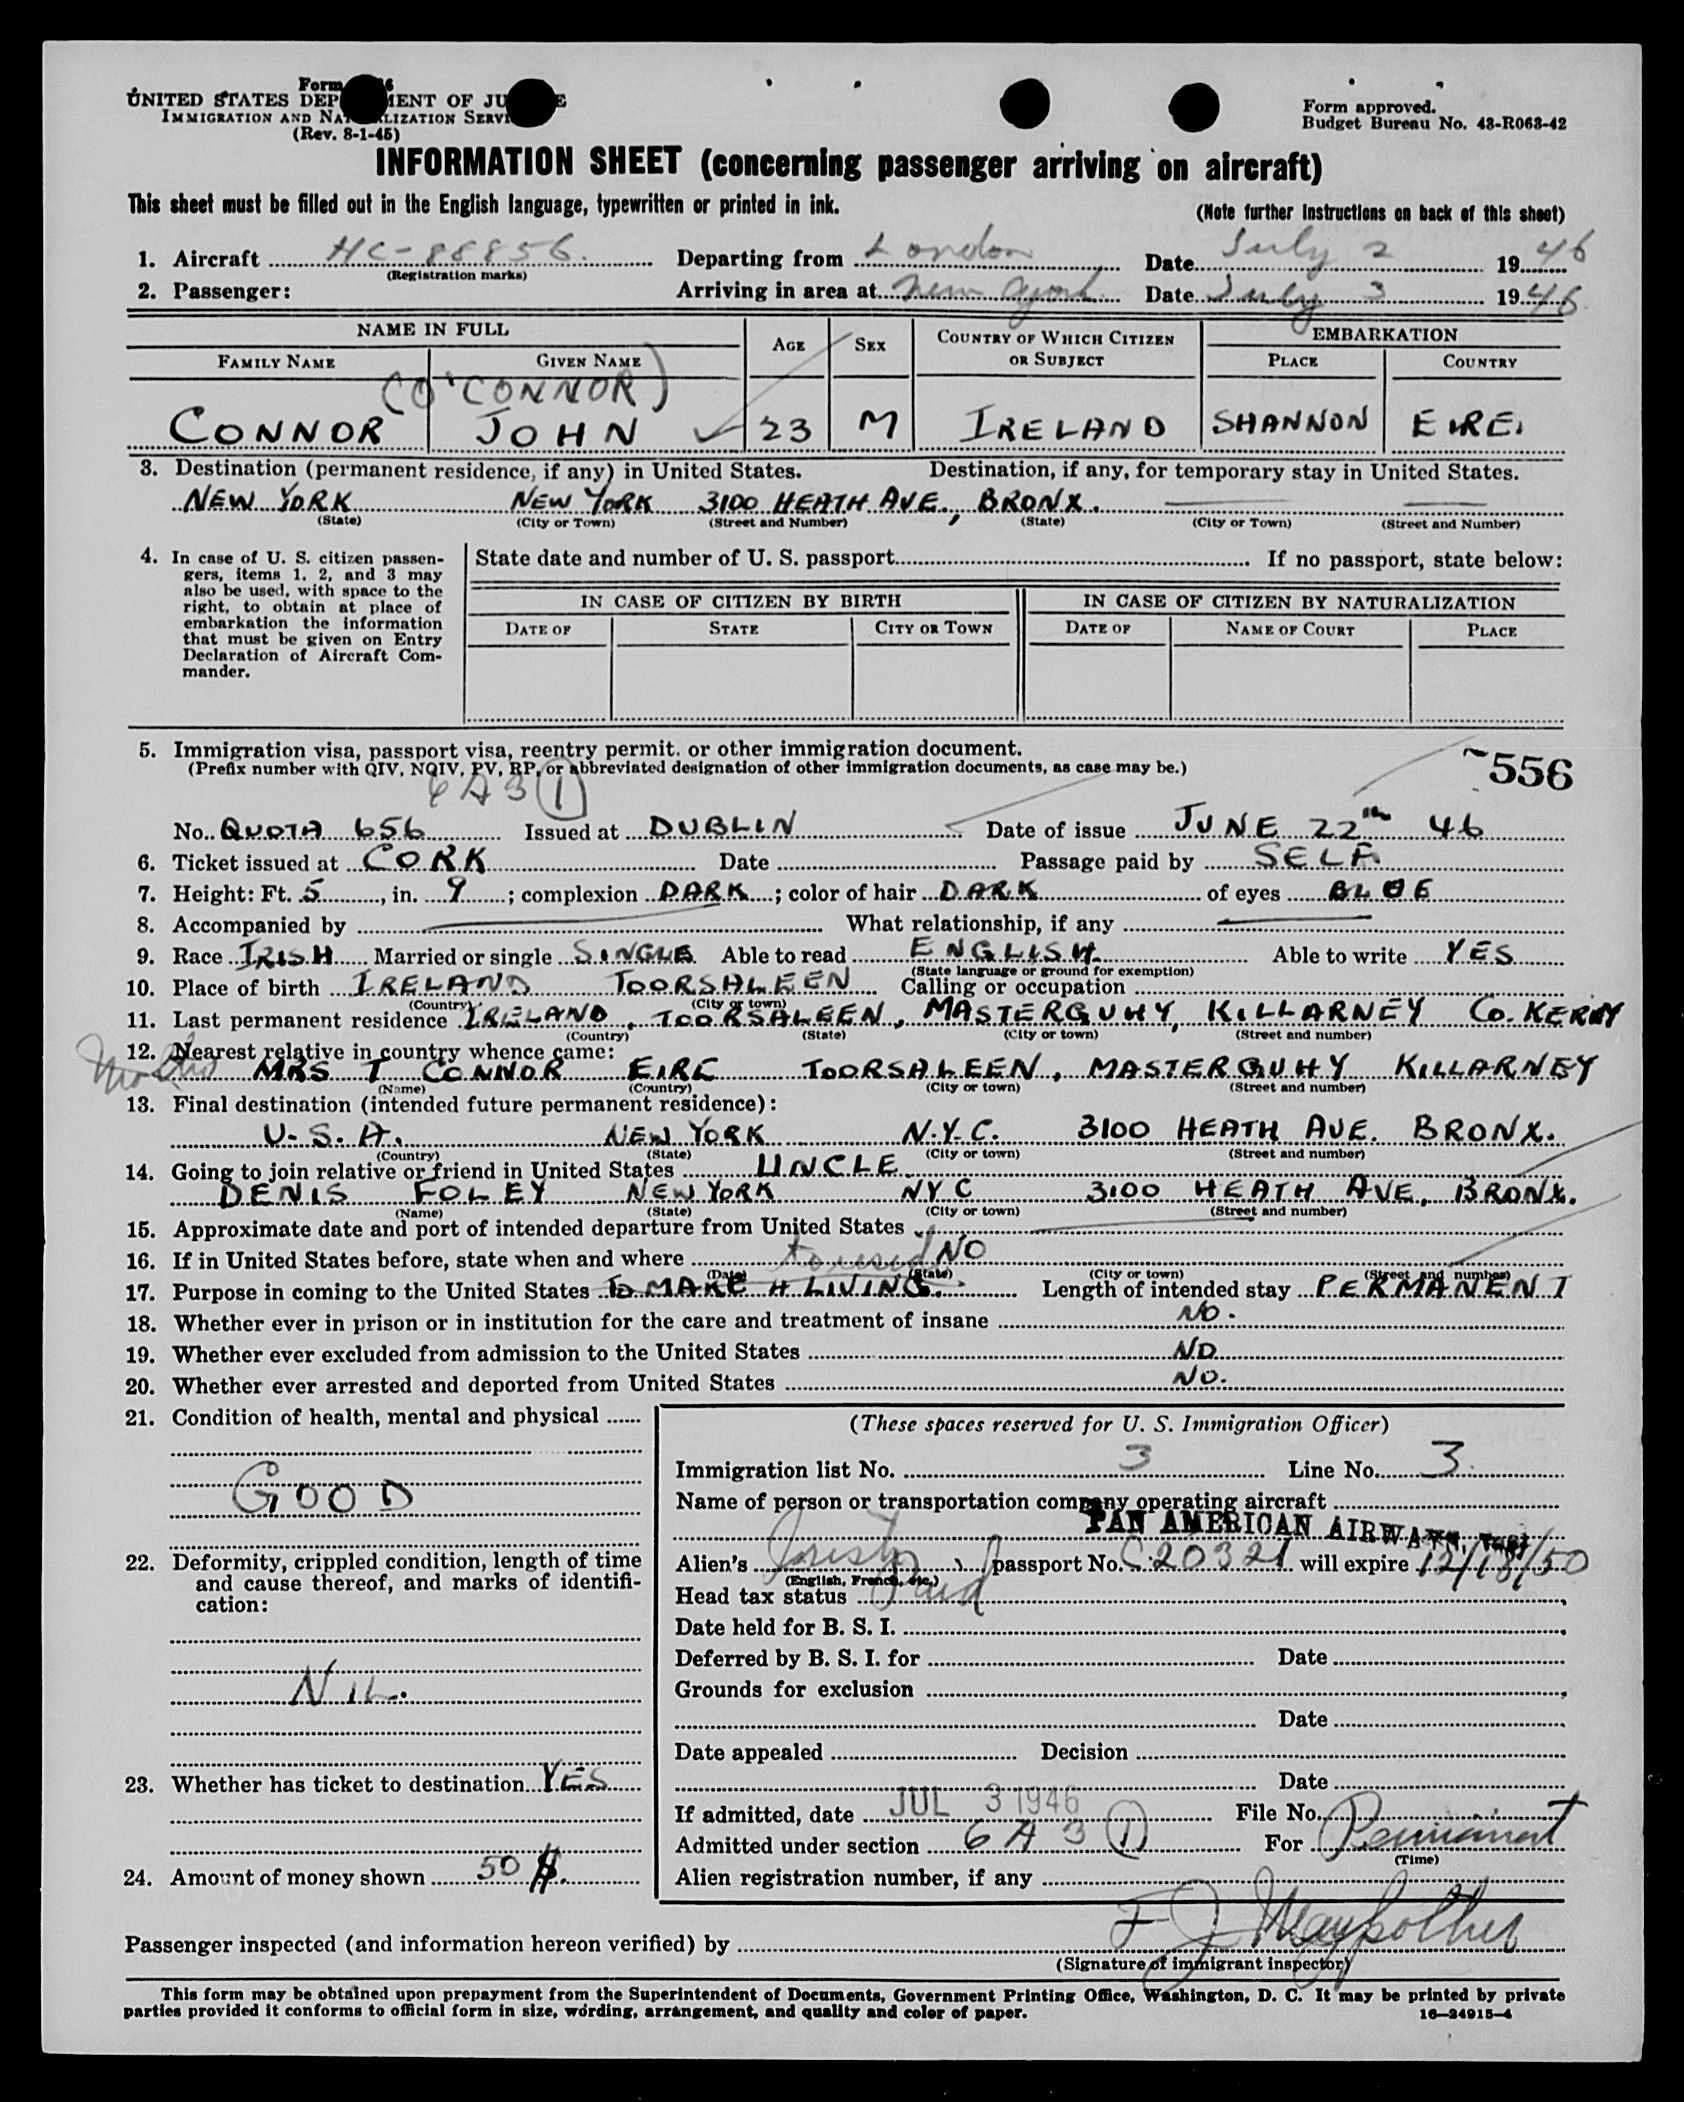 Form
UNITED STATES DEP MENT OF JU E
IMMIGRATION AND NA LIZATION SERVI
(Rev. 8-1-45)
Form approved.
Budget Bureau No. 43-R063-42
INFORMATION SHEET (concerning passenger arriving on aircraft)
This sheet must be filled out in the English language, typewritten or printed in ink.
(Note further instructions on back of this sheet)
1. Aircraft HC-88856 Departing from London Date July 2 1946
(Registration marks)
2. Passenger: Arriving in area at New York Date July 3 1946
NAME IN FULL AGE SEX COUNTRY OF WHICH CITIZEN OR SUBJECT EMBARKATION
FAMILY NAME GIVEN NAME PLACE COUNTRY
(O'CONNOR)
CONNOR JOHN 23 M IRELAND SHANNON EIRE.
3. Destination (permanent residence, if any) in United States. Destination, if any, for temporary stay in United States.
NEW YORK NEW YORK 3100 HEATH AVE., BRONX.
(State) (City or Town) (Street and Number) (State) (City or Town) (Street and Number)
4. In case of U. S. citizen passen-
gers, items 1, 2, and 3 may
also be used, with space to the
right, to obtain at place of
embarkation the information
that must be given on Entry
Declaration of Aircraft Com-
mander.
State date and number of U. S. passport If no passport, state below:
IN CASE OF CITIZEN BY BIRTH IN CASE OF CITIZEN BY NATURALIZATION
DATE OF STATE CITY OR TOWN DATE OF NAME OF COURT PLACE
5. Immigration visa, passport visa, reentry permit, or other immigration document.
(Prefix number with QIV, NQIV, PV, RP, or abbreviated designation of other immigration documents, as case may be.)
556
6 A 3 (1)
No. QUOTA 656 Issued at DUBLIN Date of issue JUNE 22th 46
6. Ticket issued at CORK Date Passage paid by SELF
7. Height: Ft. 5, in. 9; complexion DARK; color of hair DARK of eyes BLUE
8. Accompanied by What relationship, if any
9. Race IRISH Married or single SINGLE Able to read ENGLISH. Able to write YES
(State language or ground for exemption)
10. Place of birth IRELAND TOORSALEEN Calling or occupation
(Country) (City or town)
11. Last permanent residence IRELAND, TOORSALEEN, MASTERGUHY, KILLARNEY CO. KERRY
(Country) (State) (City or town) (Street and number)
12. Nearest relative in country whence came:
Mother MRS T CONNOR EIRE TOORSALEEN, MASTERGUHY KILLARNEY
(Name) (Country) (City or town) (Street and number)
13. Final destination (intended future permanent residence):
U.S.A. NEW YORK N.Y.C. 3100 HEATH AVE. BRONX.
(Country) (State) (City or town) (Street and number)
14. Going to join relative or friend in United States UNCLE
DENIS FOLEY NEW YORK NYC 3100 HEATH AVE, BRONX.
(Name) (State) (City or town) (Street and number)
15. Approximate date and port of intended departure from United States
16. If in United States before, state when and where NO
(Date) (State) (City or town) (Street and number)
17. Purpose in coming to the United States TO MAKE A LIVING. Length of intended stay PERMANENT
18. Whether ever in prison or in institution for the care and treatment of insane NO.
19. Whether ever excluded from admission to the United States NO
20. Whether ever arrested and deported from United States NO.
21. Condition of health, mental and physical
GOOD
22. Deformity, crippled condition, length of time
and cause thereof, and marks of identifi-
cation:
NIL.
23. Whether has ticket to destination YES
24. Amount of money shown 50 $.
(These spaces reserved for U. S. Immigration Officer)
Immigration list No. 3 Line No. 3
Name of person or transportation company operating aircraft
PAN AMERICAN AIRWAYS,
Alien's passport No. C.20321 will expire 12/18/50
(English, French, etc.)
Head tax status Paid
Date held for B. S. I.
Deferred by B. S. I. for Date
Grounds for exclusion
Date
Date appealed Decision
Date
If admitted, date JUL 3 1946 File No.
Admitted under section 6 A 3 (1) For Permanent
(Time)
Alien registration number, if any
Passenger inspected (and information hereon verified) by F J
(Signature of immigrant inspector)
This form may be obtained upon prepayment from the Superintendent of Documents, Government Printing Office, Washington, D. C. It may be printed by private
parties provided it conforms to official form in size, wording, arrangement, and quality and color of paper. 16—24915-4